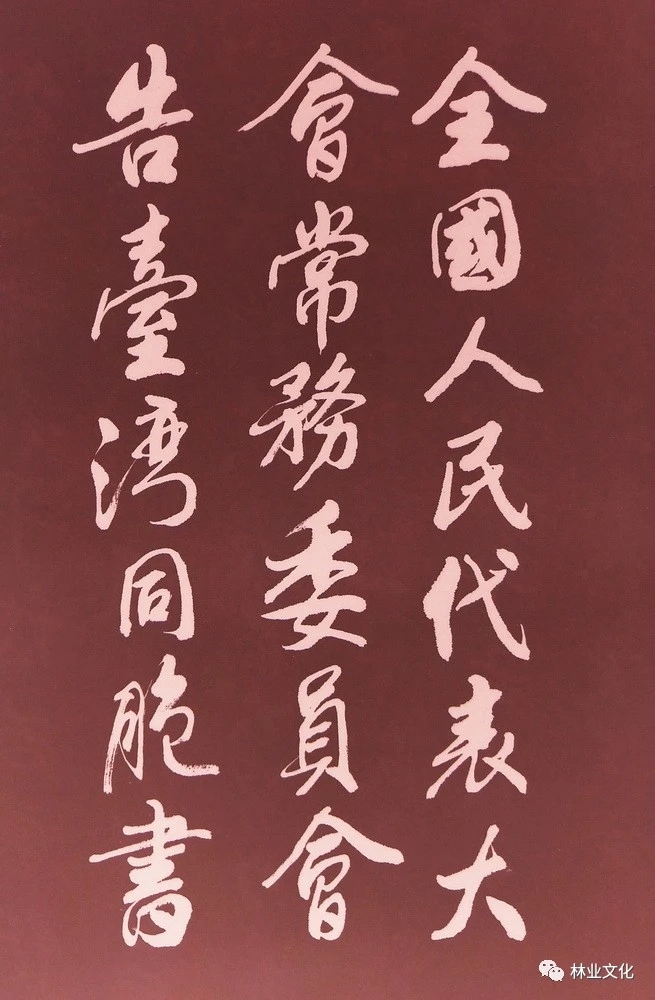 全國人民代表大
會常務委員會
告臺湾同胞書
林业文化